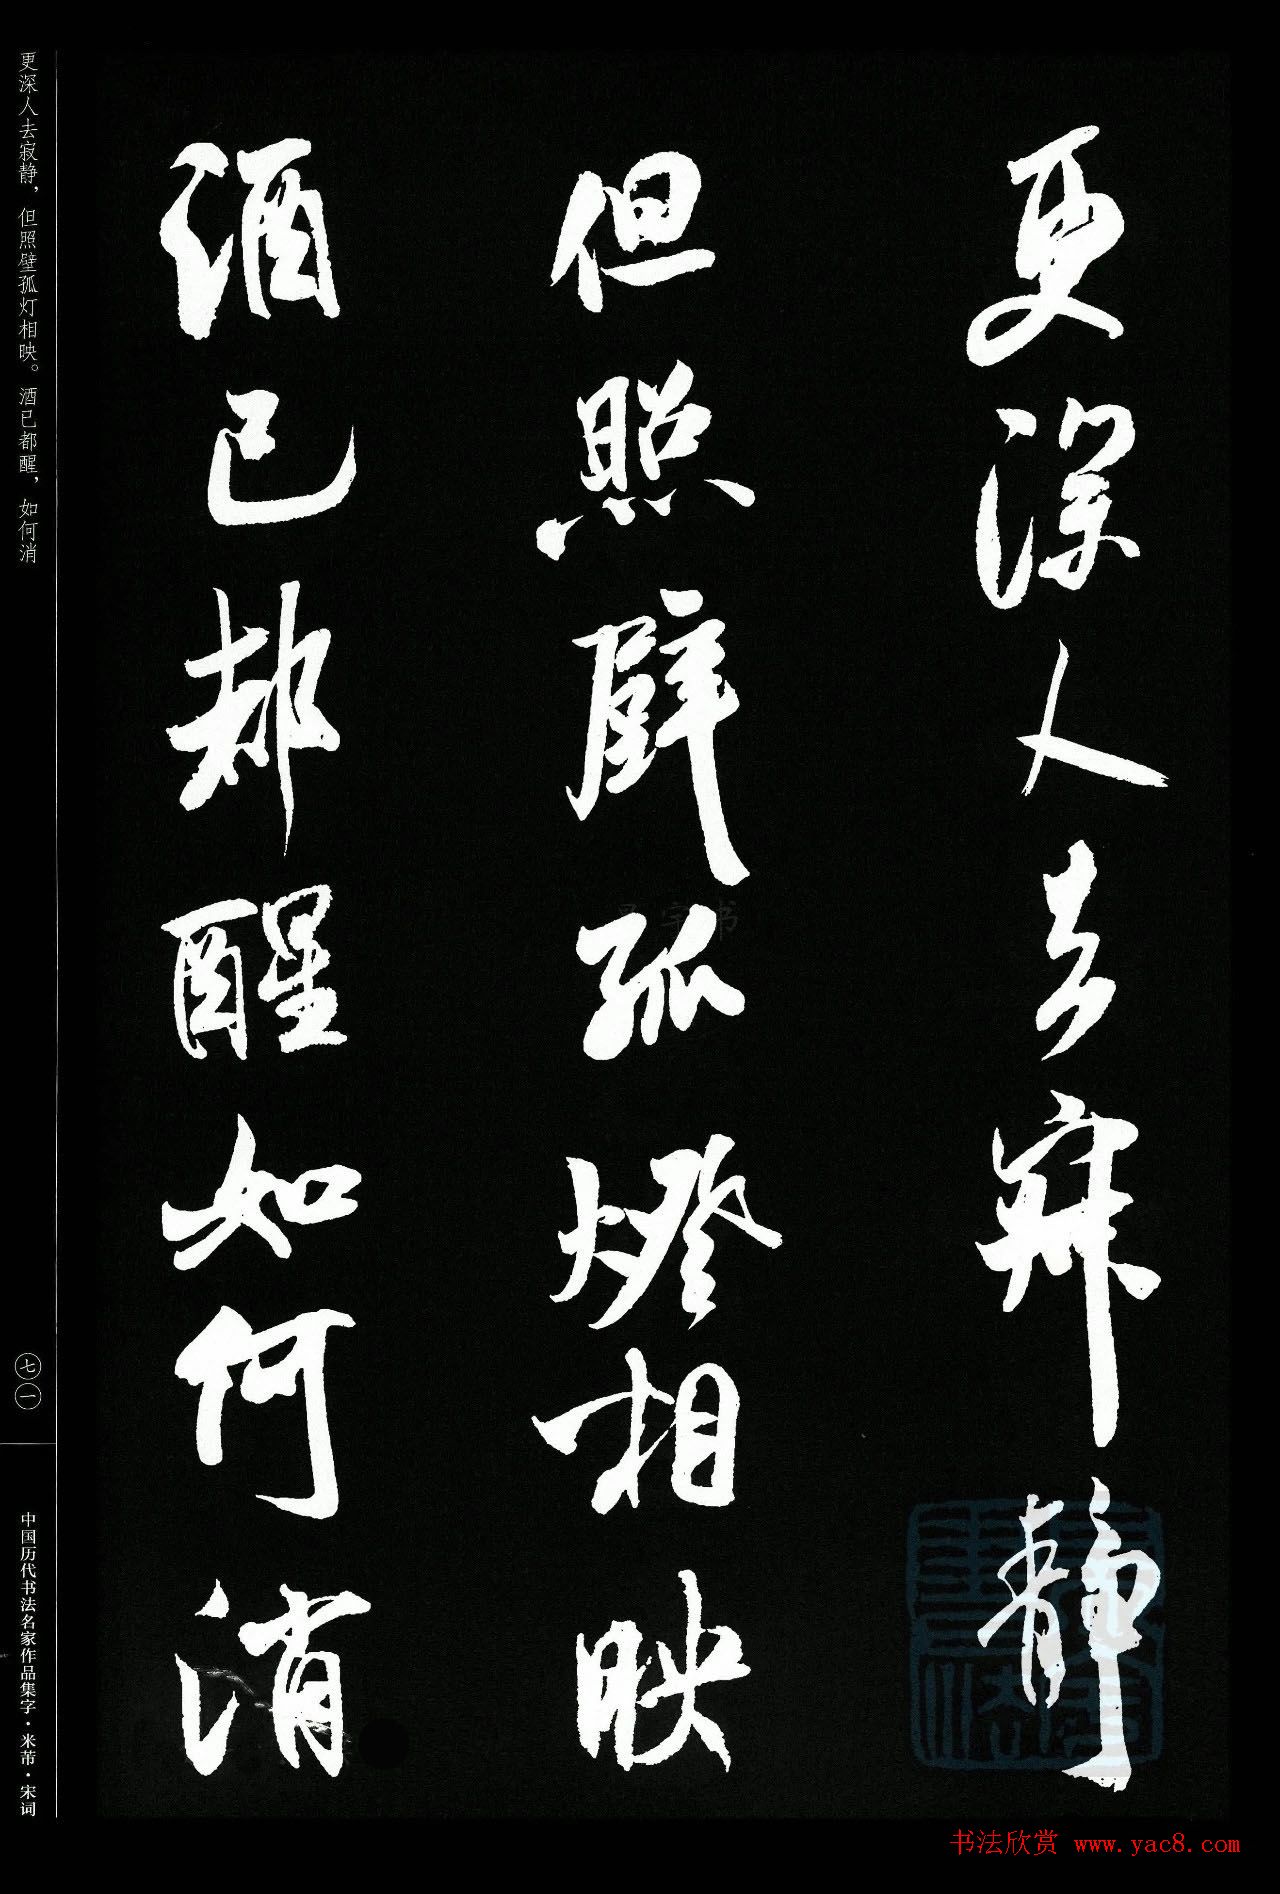 更深人去寂静
但照壁孤燈相映
酒已都醒如何消
更深人去寂静，但照壁孤灯相映。酒已都醒，如何消
七一
中国历代书法名家作品集字·米芾·宋词
书法欣赏 www.yac8.com